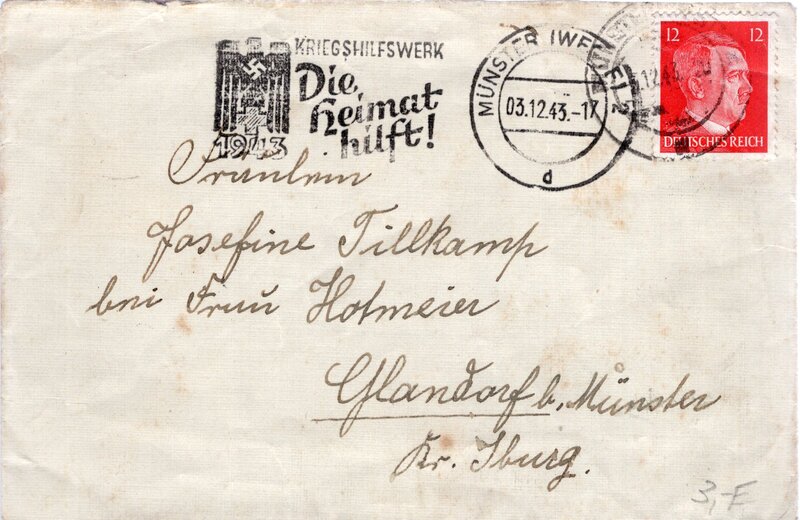 KRIEGSHILFSWERK
Die
Heimat
hilft!
1943
MÜNSTER (WE
03.12.43.-17
d
12 12
DEUTSCHES REICH
Fräulein
Josefine Tillkamp
bei Frau Hotmeier
Glandorf b. Münster
Kr. Iburg.
3,-F